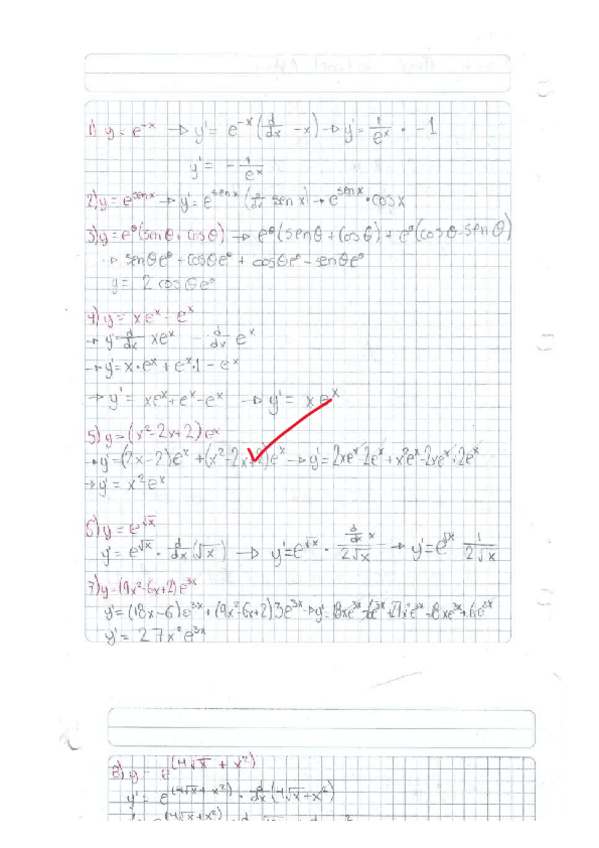 1) y = e^-x → y' = e^-x (d/dx -x) → y' = 1/e^x · -1
y' = - 1/e^x
2) y = e^senx → y' = e^senx (d/dx sen x) → e^senx · cosx
3) y = e^θ(senθ + cosθ) → e^θ(senθ + cosθ) + e^θ(cosθ - senθ)
→ senθe^θ + cosθe^θ + cosθe^θ - senθe^θ
y = 2 cosθe^θ
4) y = xe^x - e^x
→ y' = d/dx xe^x - d/dx e^x
→ y' = x·e^x + e^x·1 - e^x
→ y' = xe^x + e^x - e^x → y' = xe^x
5) y = (x²-2x+2)e^x
→ y' = (2x-2)e^x + (x²-2x+2)e^x → y' = 2xe^x-2e^x + x²e^x-2xe^x+2e^x
→ y' = x²e^x
6) y = e^√x
y' = e^√x · d/dx (√x) → y' = e^√x · d/dx x / 2√x → y' = e^√x 1/2√x
7) y = (9x²-6x+2)e^3x
y' = (18x-6)e^3x + (9x²-6x+2)3e^3x → y' = 18xe^3x - 6e^3x + 27x²e^3x - 18xe^3x + 6e^3x
y' = 27x²e^3x
8) y = e^(4√x + x²)
y' = e^(4√x + x²) · d/dx (4√x + x²)